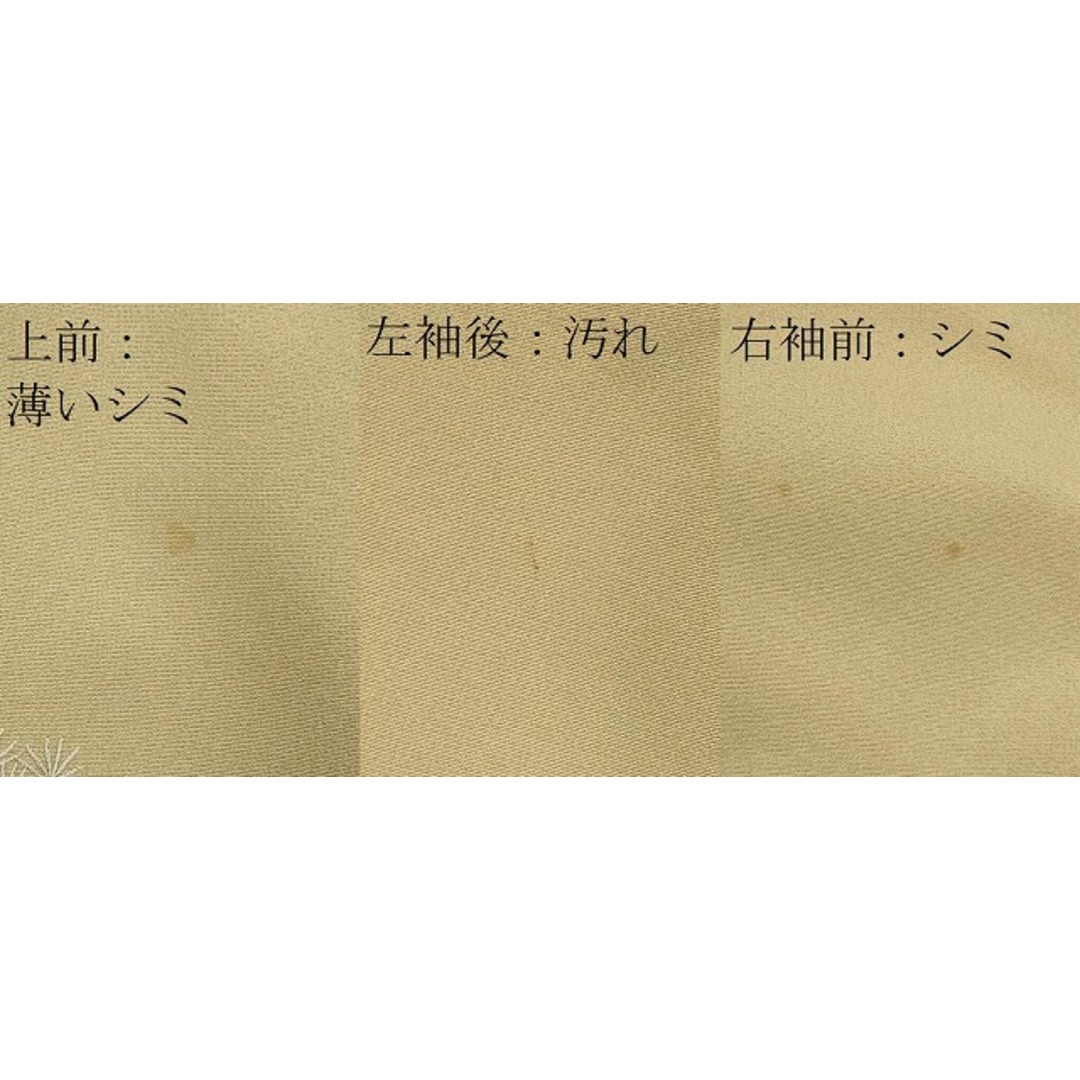 上前：
薄いシミ
左袖後：汚れ
右袖前：シミ